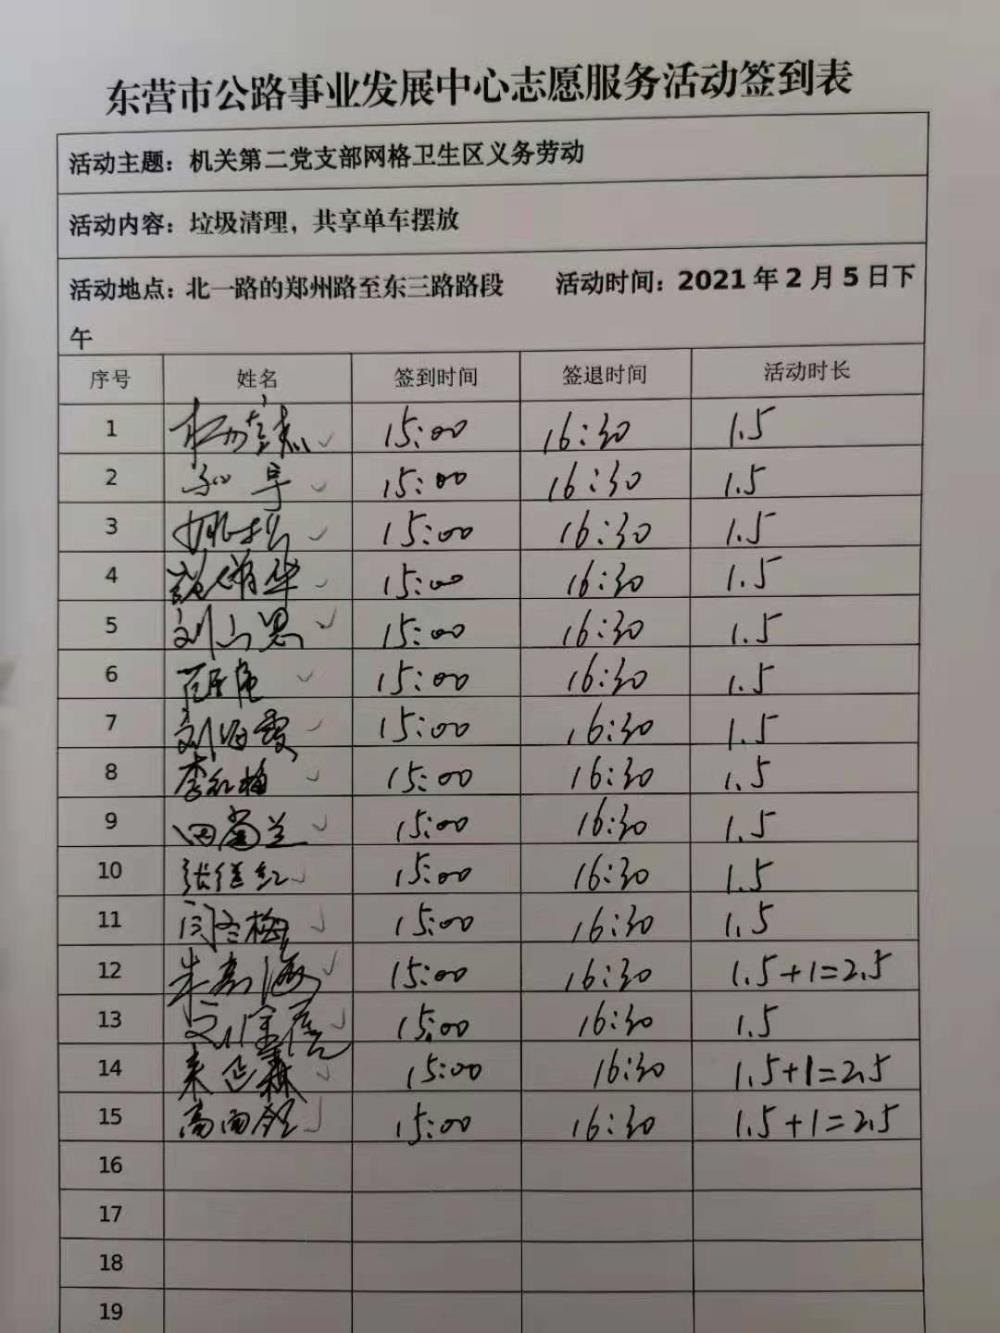 东营市公路事业发展中心志愿服务活动签到表
活动主题：机关第二党支部网格卫生区义务劳动
活动内容：垃圾清理，共享单车摆放
活动地点：北一路的郑州路至东三路路段 活动时间：2021年2月5日下
午
序号 姓名 签到时间 签退时间 活动时长
1 15:00 16:30 1.5
2 15:00 16:30 1.5
3 15:00 16:30 1.5
4 15:00 16:30 1.5
5 15:00 16:30 1.5
6 15:00 16:30 1.5
7 刘海霞 15:00 16:30 1.5
8 李红梅 15:00 16:30 1.5
9 15:00 16:30 1.5
10 15:00 16:30 1.5
11 闫冬梅 15:00 16:30 1.5
12 15:00 16:30 1.5+1=2.5
13 15:00 16:30 1.5
14 15:00 16:30 1.5+1=2.5
15 15:00 16:30 1.5+1=2.5
16
17
18
19